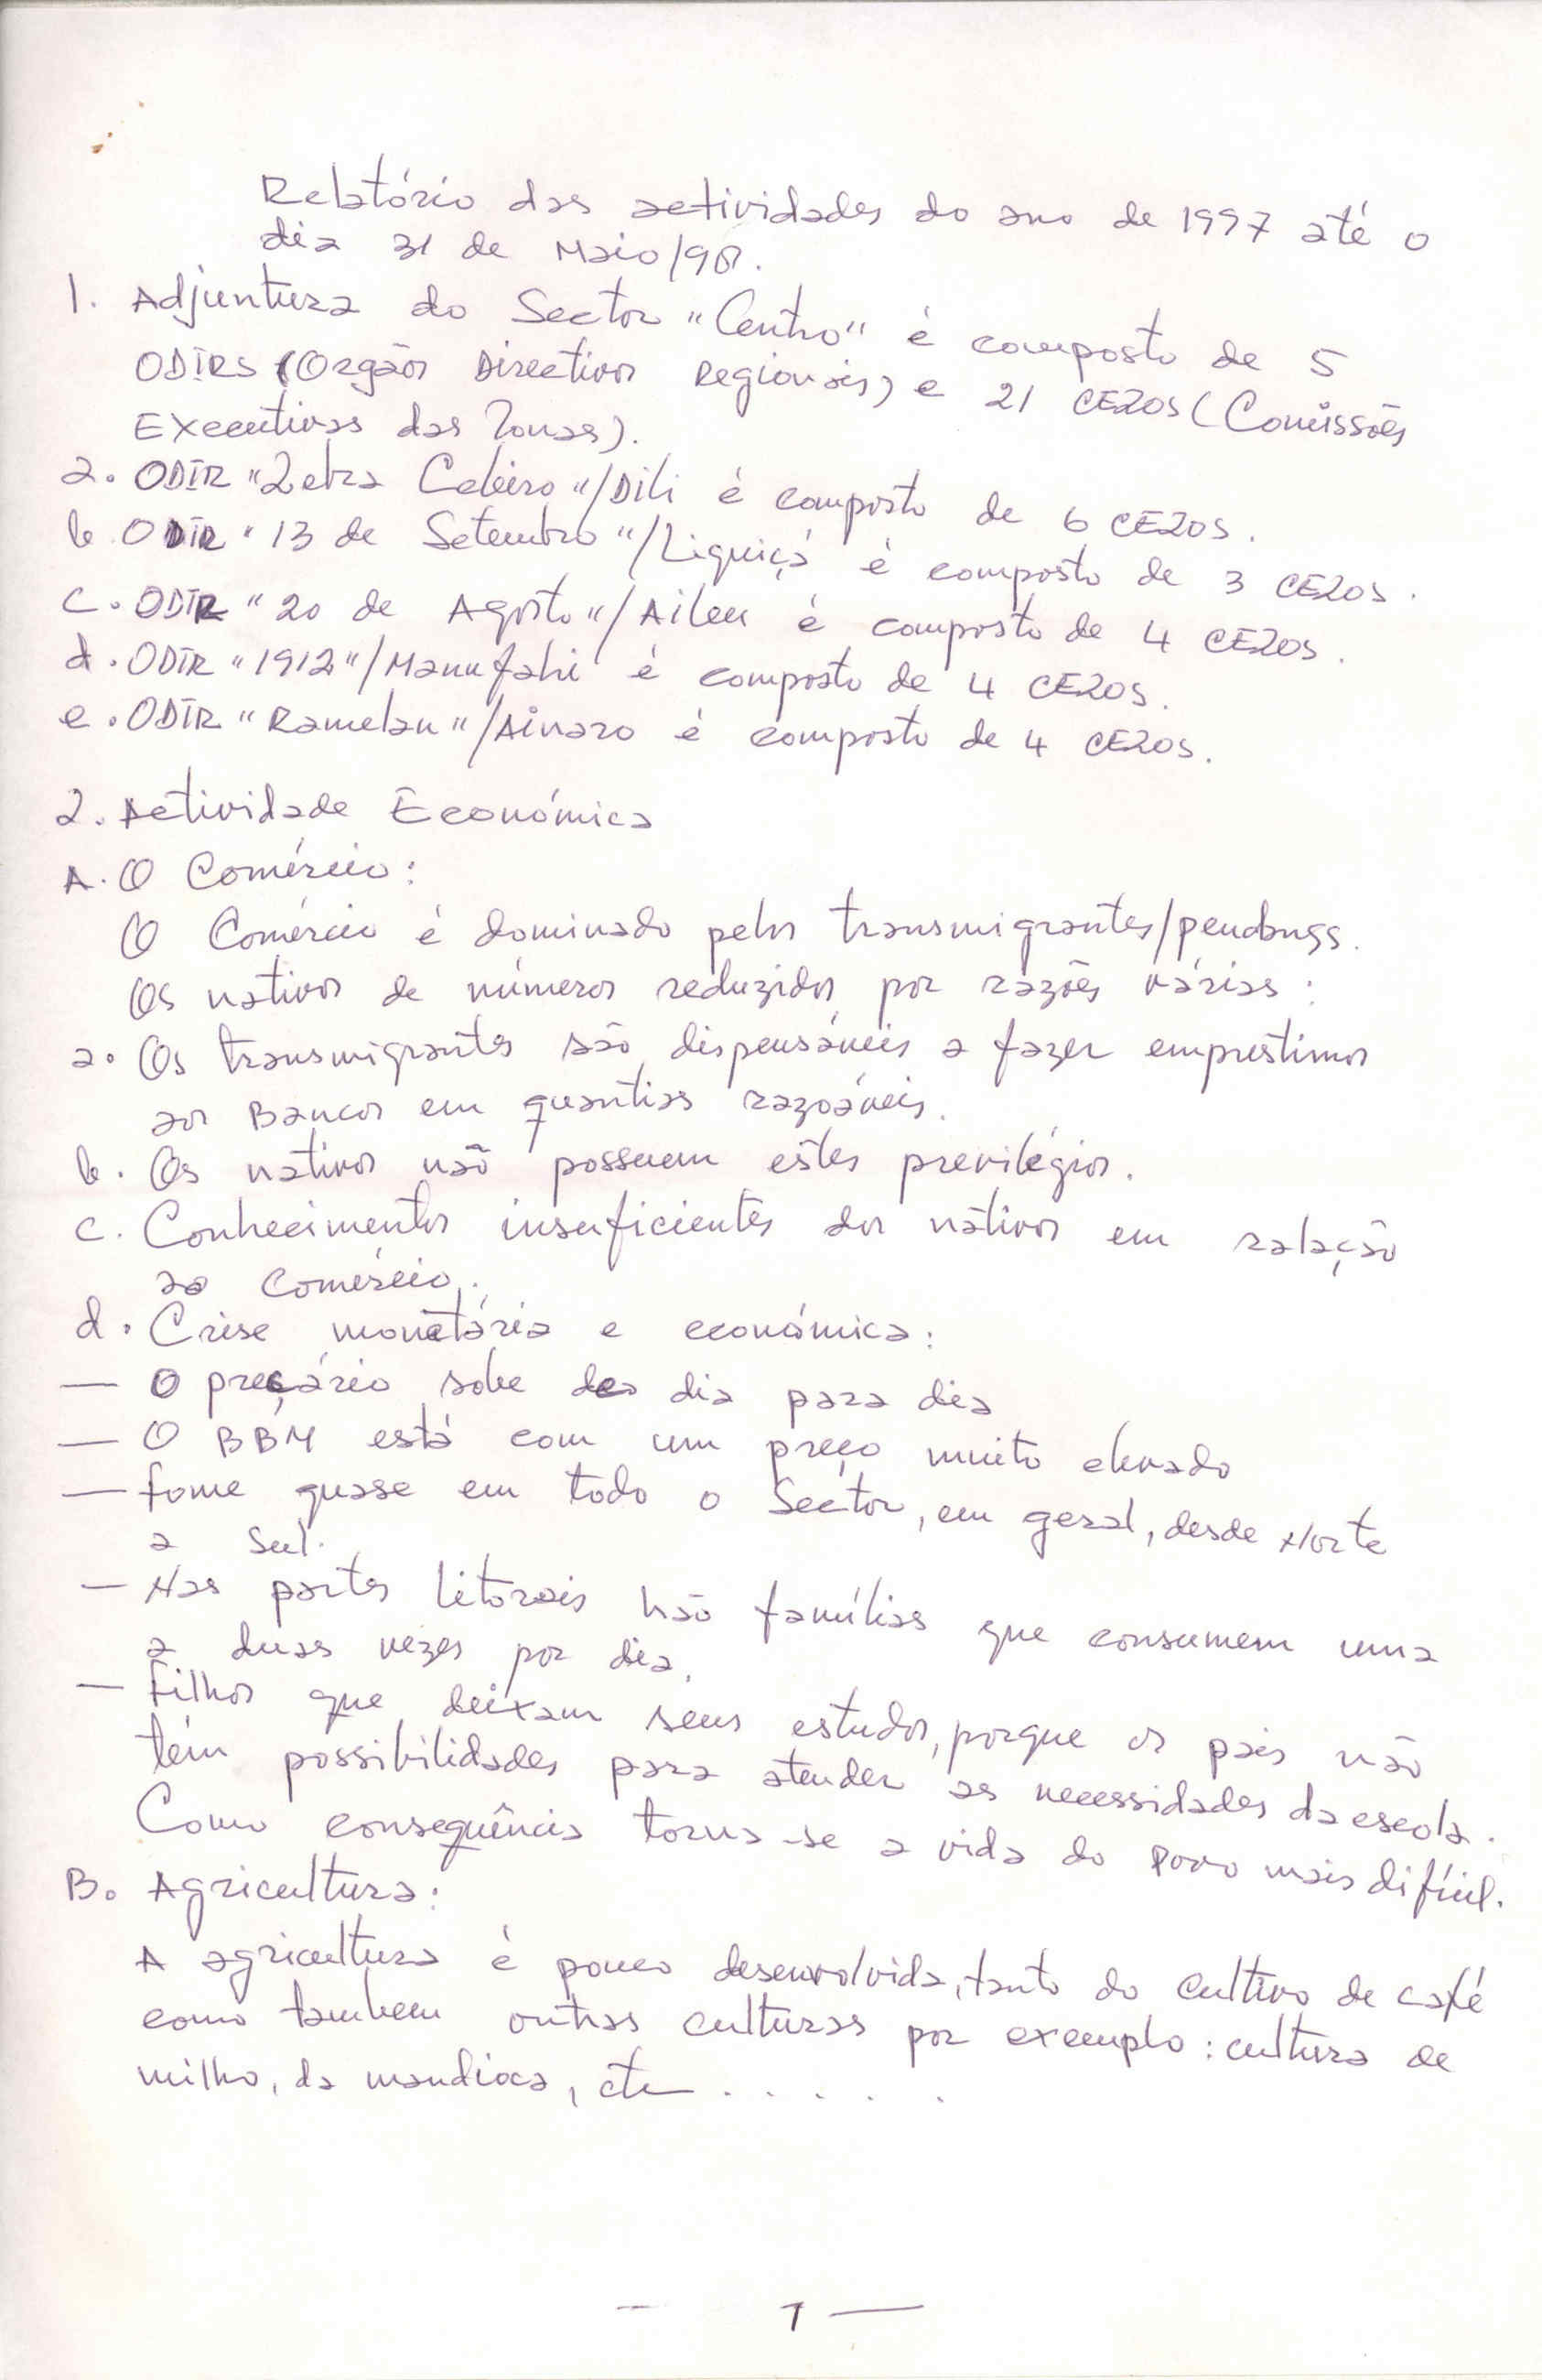 Relatório das actividades do ano de 1997 até o
dia 31 de Maio/98.
1. Adjuntura do Sector "Centro" é composto de 5
ODIRS (Orgãos Directivos Regionais) e 21 CEZOS (Comissões
Executivas das Zonas).
a. ODIR "Zebra Cebeiro"/Dili é composto de 6 CEZOS.
b. ODIR "13 de Setembro"/Liquiçá é composto de 3 CEZOS.
c. ODIR "20 de Agosto"/Aileu é composto de 4 CEZOS.
d. ODIR "1912"/Manufahi é composto de 4 CEZOS.
e. ODIR "Ramelau"/Ainaro é composto de 4 CEZOS.
2. Actividade Económica
A. O Comércio:
O Comércio é dominado pelos transmigrantes/pendangs.
Os nativos de números reduzidos, por razões várias:
a. Os transmigrantes são dispensáveis a fazer emprestimos
aos Bancos em quantias razoáveis.
b. Os nativos não possuem estes previlégios.
c. Conhecimentos insuficientes dos nativos em ralação
ao comércio.
d. Crise monetária e económica:
— O preçário sobe do dia para dia
— O BBM está com um preço muito elevado
— fome quase em todo o Sector, em geral, desde Norte
a Sul.
— Nas partes litorais hão famílias que consumem uma
a duas vezes por dia.
— Filhos que deixam seus estudos, porque os pais não
têm possibilidades para atender as necessidades da escola.
Como consequência torna-se a vida do Povo mais difícil.
B. Agricultura:
A agricultura é pouco desenvolvida, tanto do cultivo de café
como tambem outras culturas por exemplo: cultura de
milho, da mandioca, etc . . . . .
— 1 —